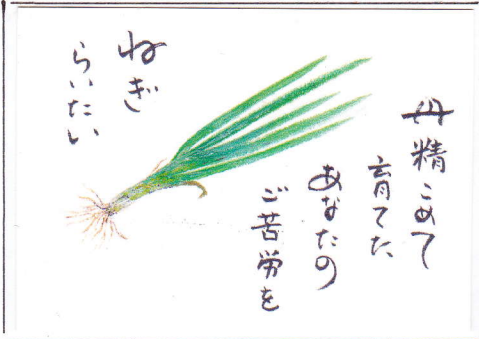 丹精こめて
育てた
あなたの
ご苦労を
ねぎ
らいたい